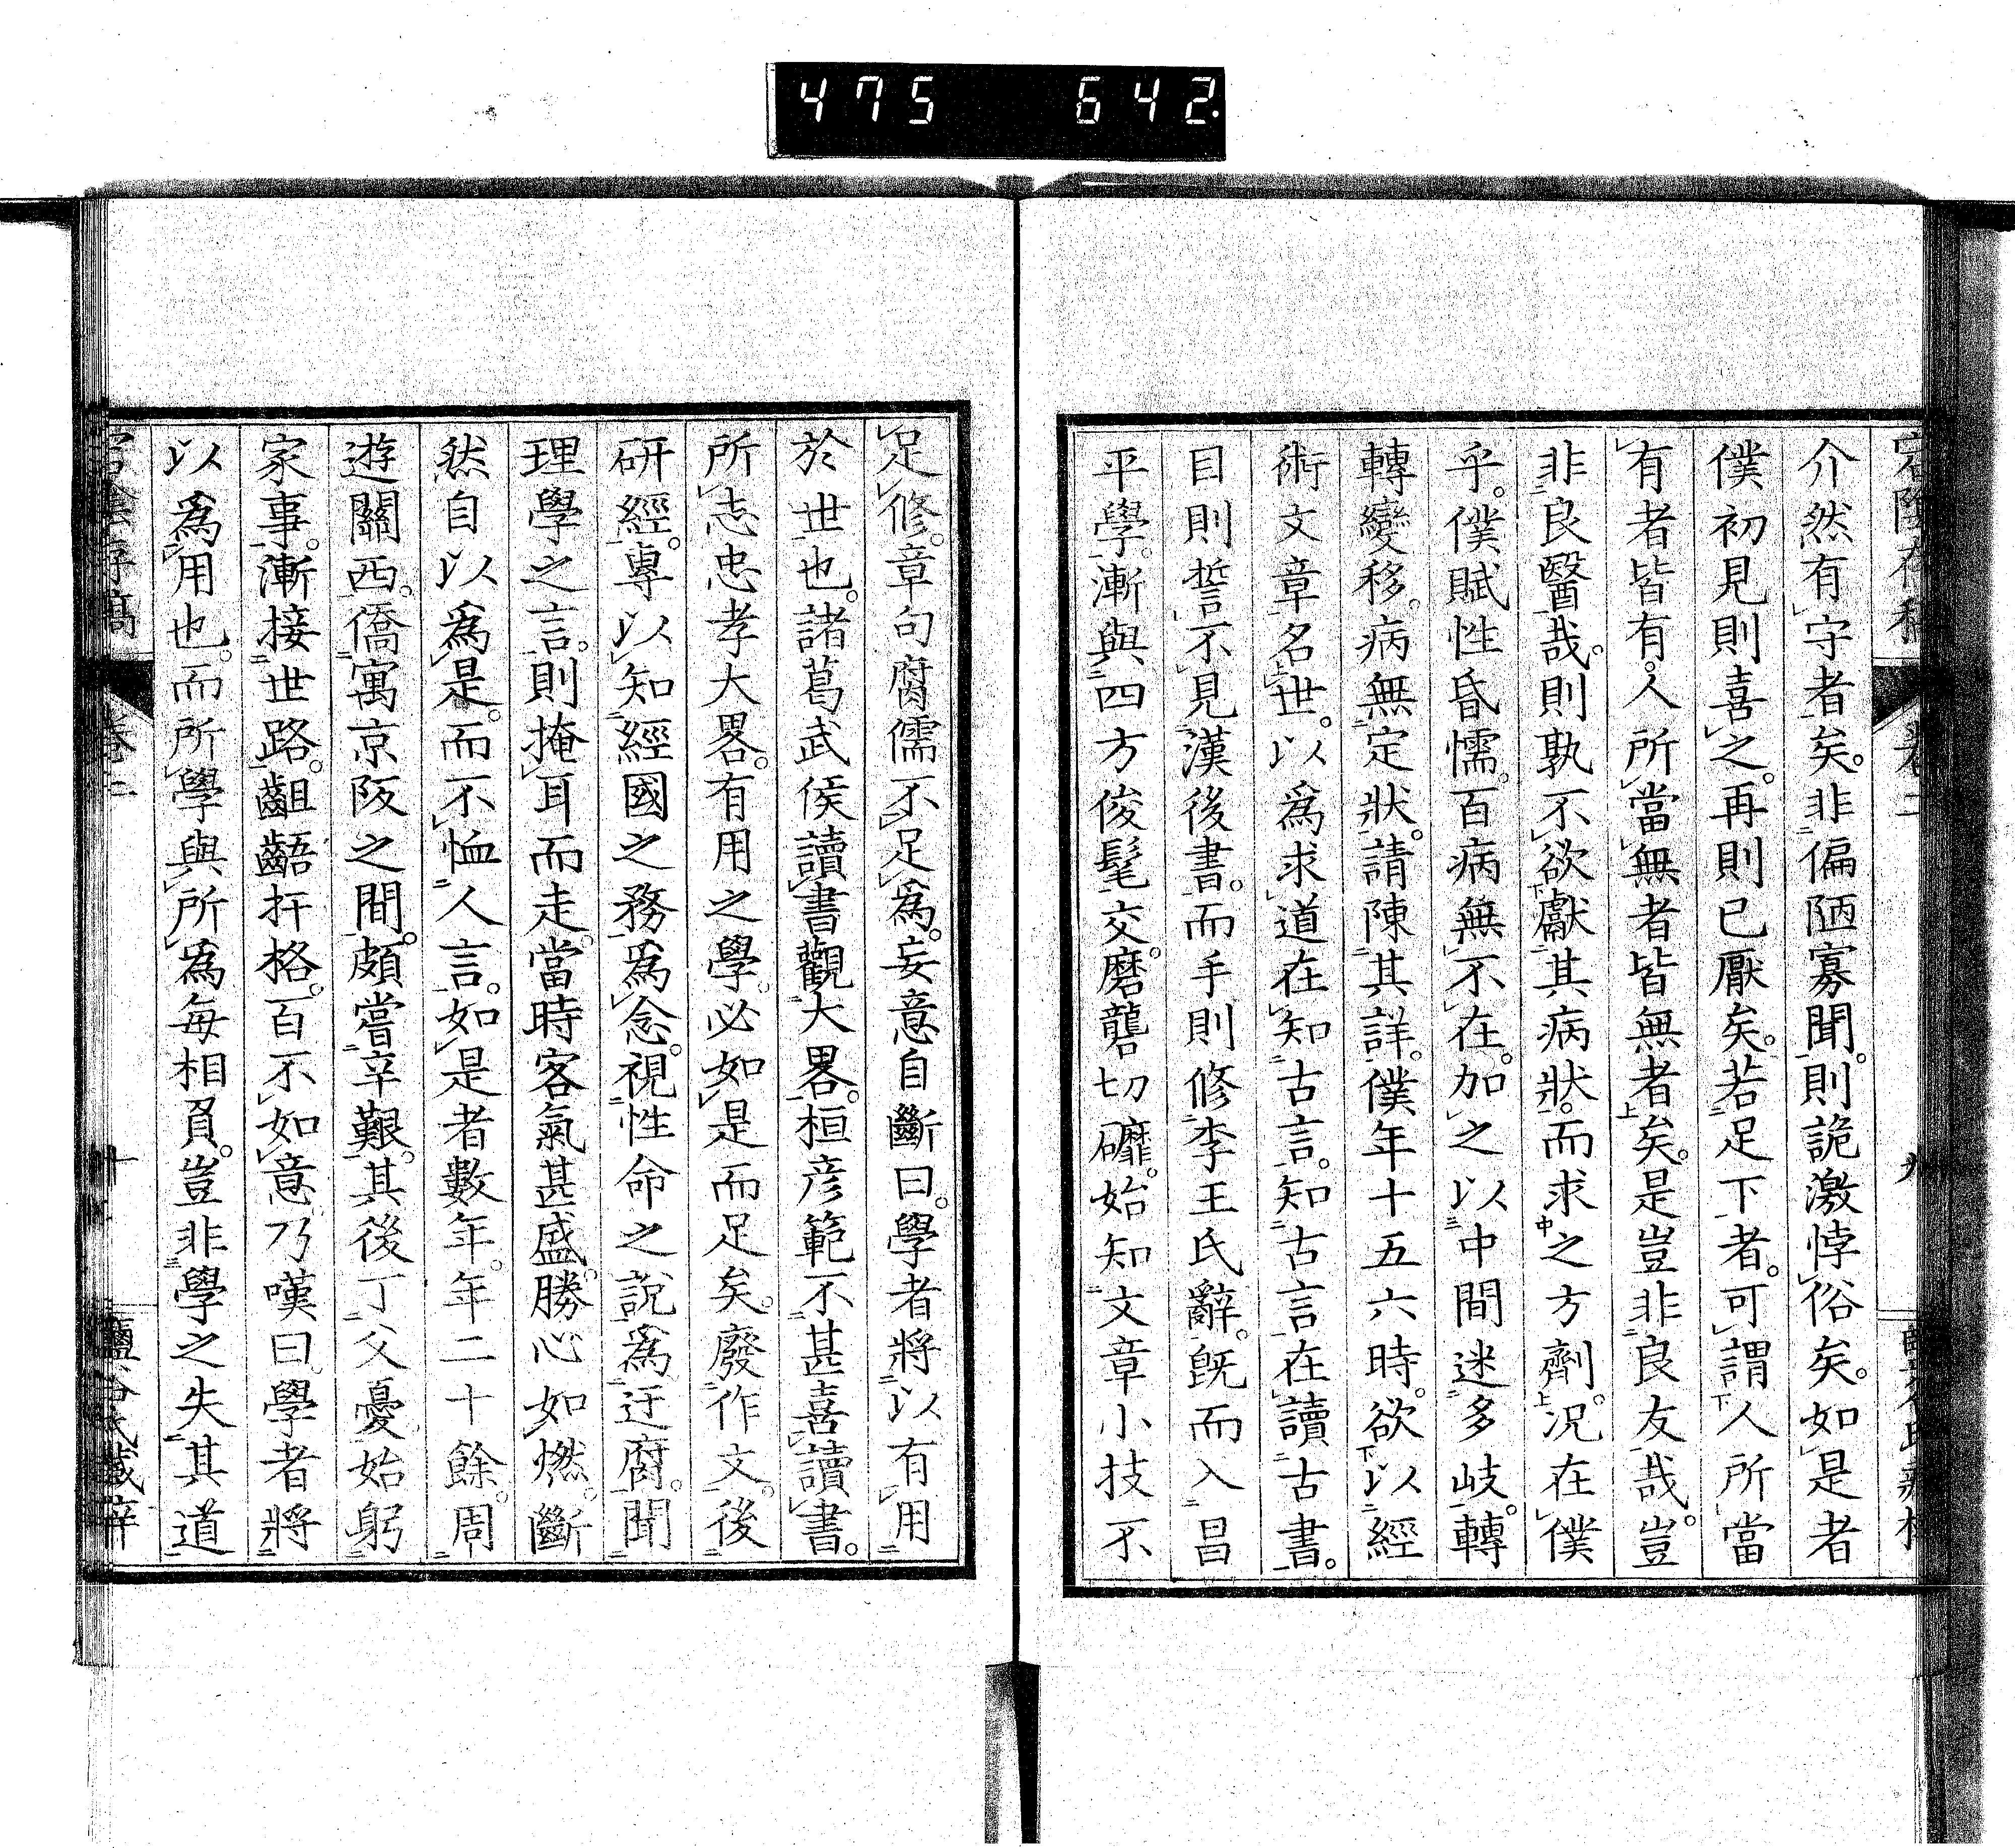 475 642.
介然有守者矣。非偏陋寡聞。則詭激悖俗矣。如是者
僕初見則喜之。再則已厭矣。若足下者。可謂人所當
有者皆有。人所當無者皆無者矣。是豈非良友哉。豈
非良醫哉。則孰不欲獻其病狀。而求之方劑。況在僕
乎。僕賦性昏懦。百病無不在。加之以中間迷多岐。轉
轉變移。病無定狀。請陳其詳。僕年十五六時。欲以經
術文章名世。以爲求道在知古言。知古言在讀古書。
目則誓不見漢後書。而手則修李王氏辭。旣而入昌
平學。漸與四方俊髦交。磨礱切礳。始知文章小技不
足修。章句腐儒不足爲。妄意自斷曰。學者將以有用
於世也。諸葛武侯讀書觀大畧。桓彦範不甚喜讀書。
所志忠孝大畧。有用之學。必如是而足矣。廢作文。後
研經。專以知經國之務爲念。視性命之說爲迂腐。聞
理學之言。則掩耳而走。當時客氣甚盛。勝心如燃。斷
然自以爲是。而不恤人言。如是者數年。年二十餘。周
遊關西。僑寓京阪之間。頗嘗辛艱。其後丁父憂。始躬
家事。漸接世路。齟齬扞格。百不如意。乃嘆曰。學者將
以爲用也。而所學與所爲每相負。豈非學之失其道